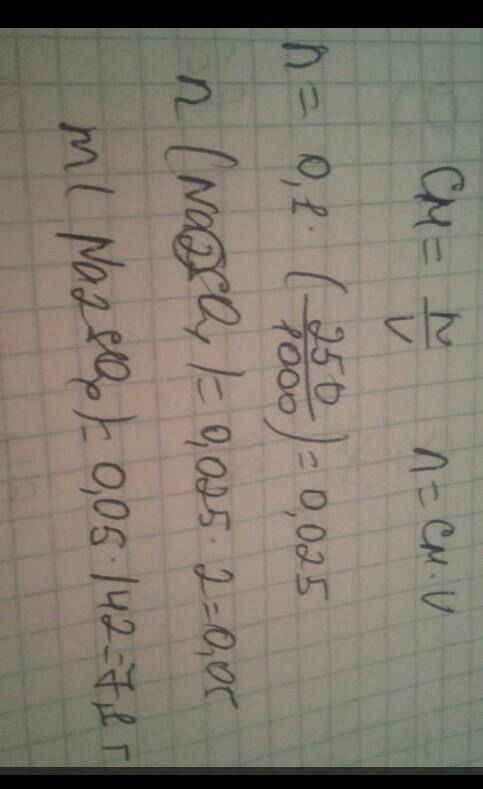 CM = n/V n = CM · V
n = 0,1 · (250/1000) = 0,025
n (Na2SO4) = 0,025 · 2 = 0,05
m (Na2SO4) = 0,05 · 142 = 7,1 г